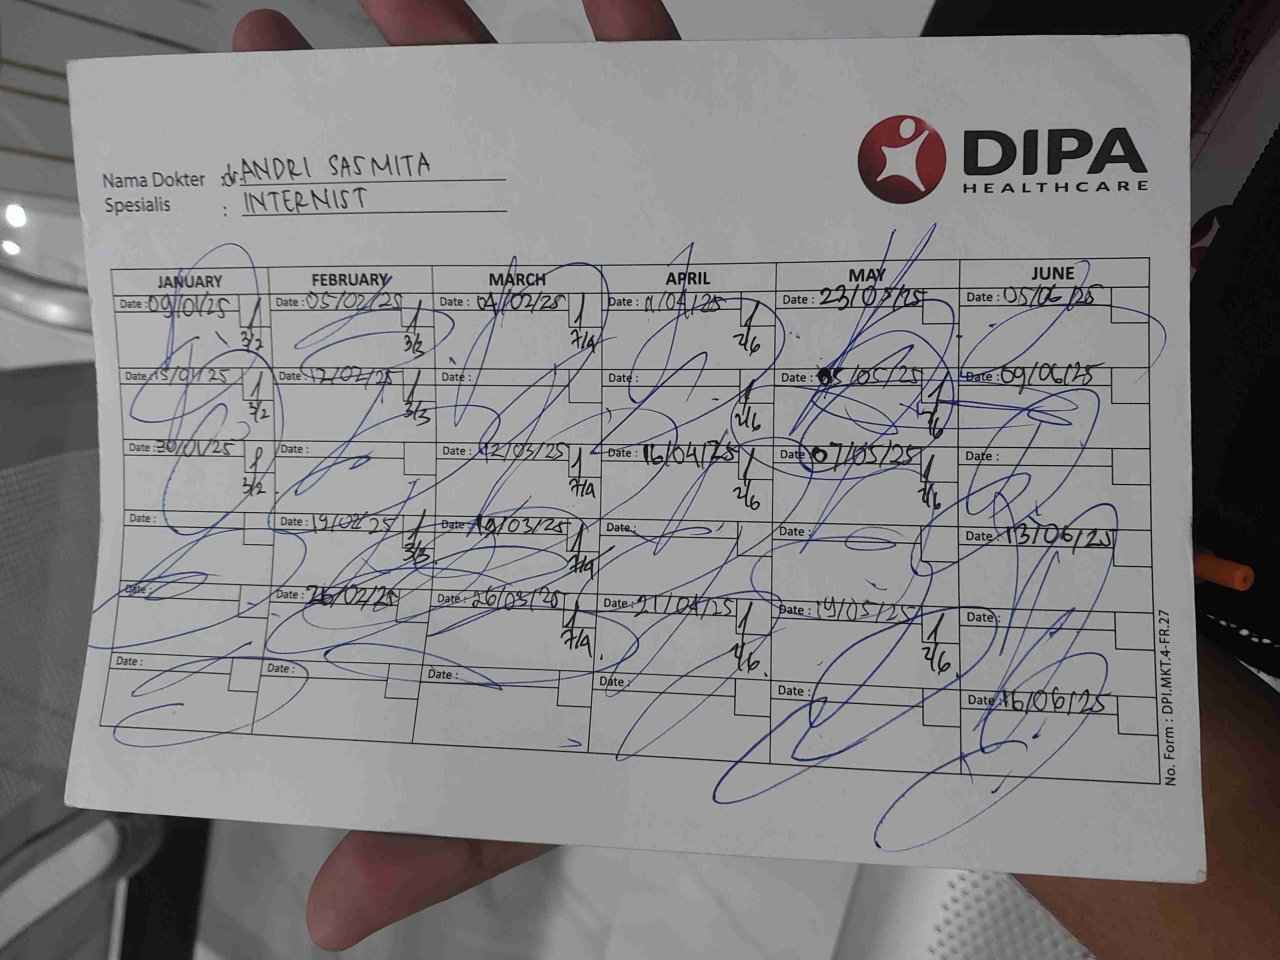 DIPA
HEALTHCARE
Nama Dokter : dr. ANDRI SASMITA
Spesialis : INTERNIST
JANUARY FEBRUARY MARCH APRIL MAY JUNE
Date : 09/01/25 Date : 05/02/25 Date : 04/02/25 Date : 11/04/25 Date : 23/05/25 Date : 05/06/25
3/2 3/3 7/4 2/6
Date : 15/01/25 Date : 12/02/25 Date : Date : Date : 05/05/25 Date : 09/06/25
3/2 3/3 2/6 2/6
Date : 30/01/25 Date : Date : 12/03/25 Date : 16/04/25 Date : 07/05/25 Date :
3/2 7/4 2/6 2/6
Date : Date : 19/02/25 Date : 19/03/25 Date : Date : Date : 13/06/25
3/3 7/4
Date : Date : 26/02/25 Date : 26/03/25 Date : 21/04/25 Date : 19/05/25 Date :
7/4 2/6 2/6
Date : Date : Date : Date : Date : Date : 16/06/25
No. Form : DPI.MKT.4-FR.27